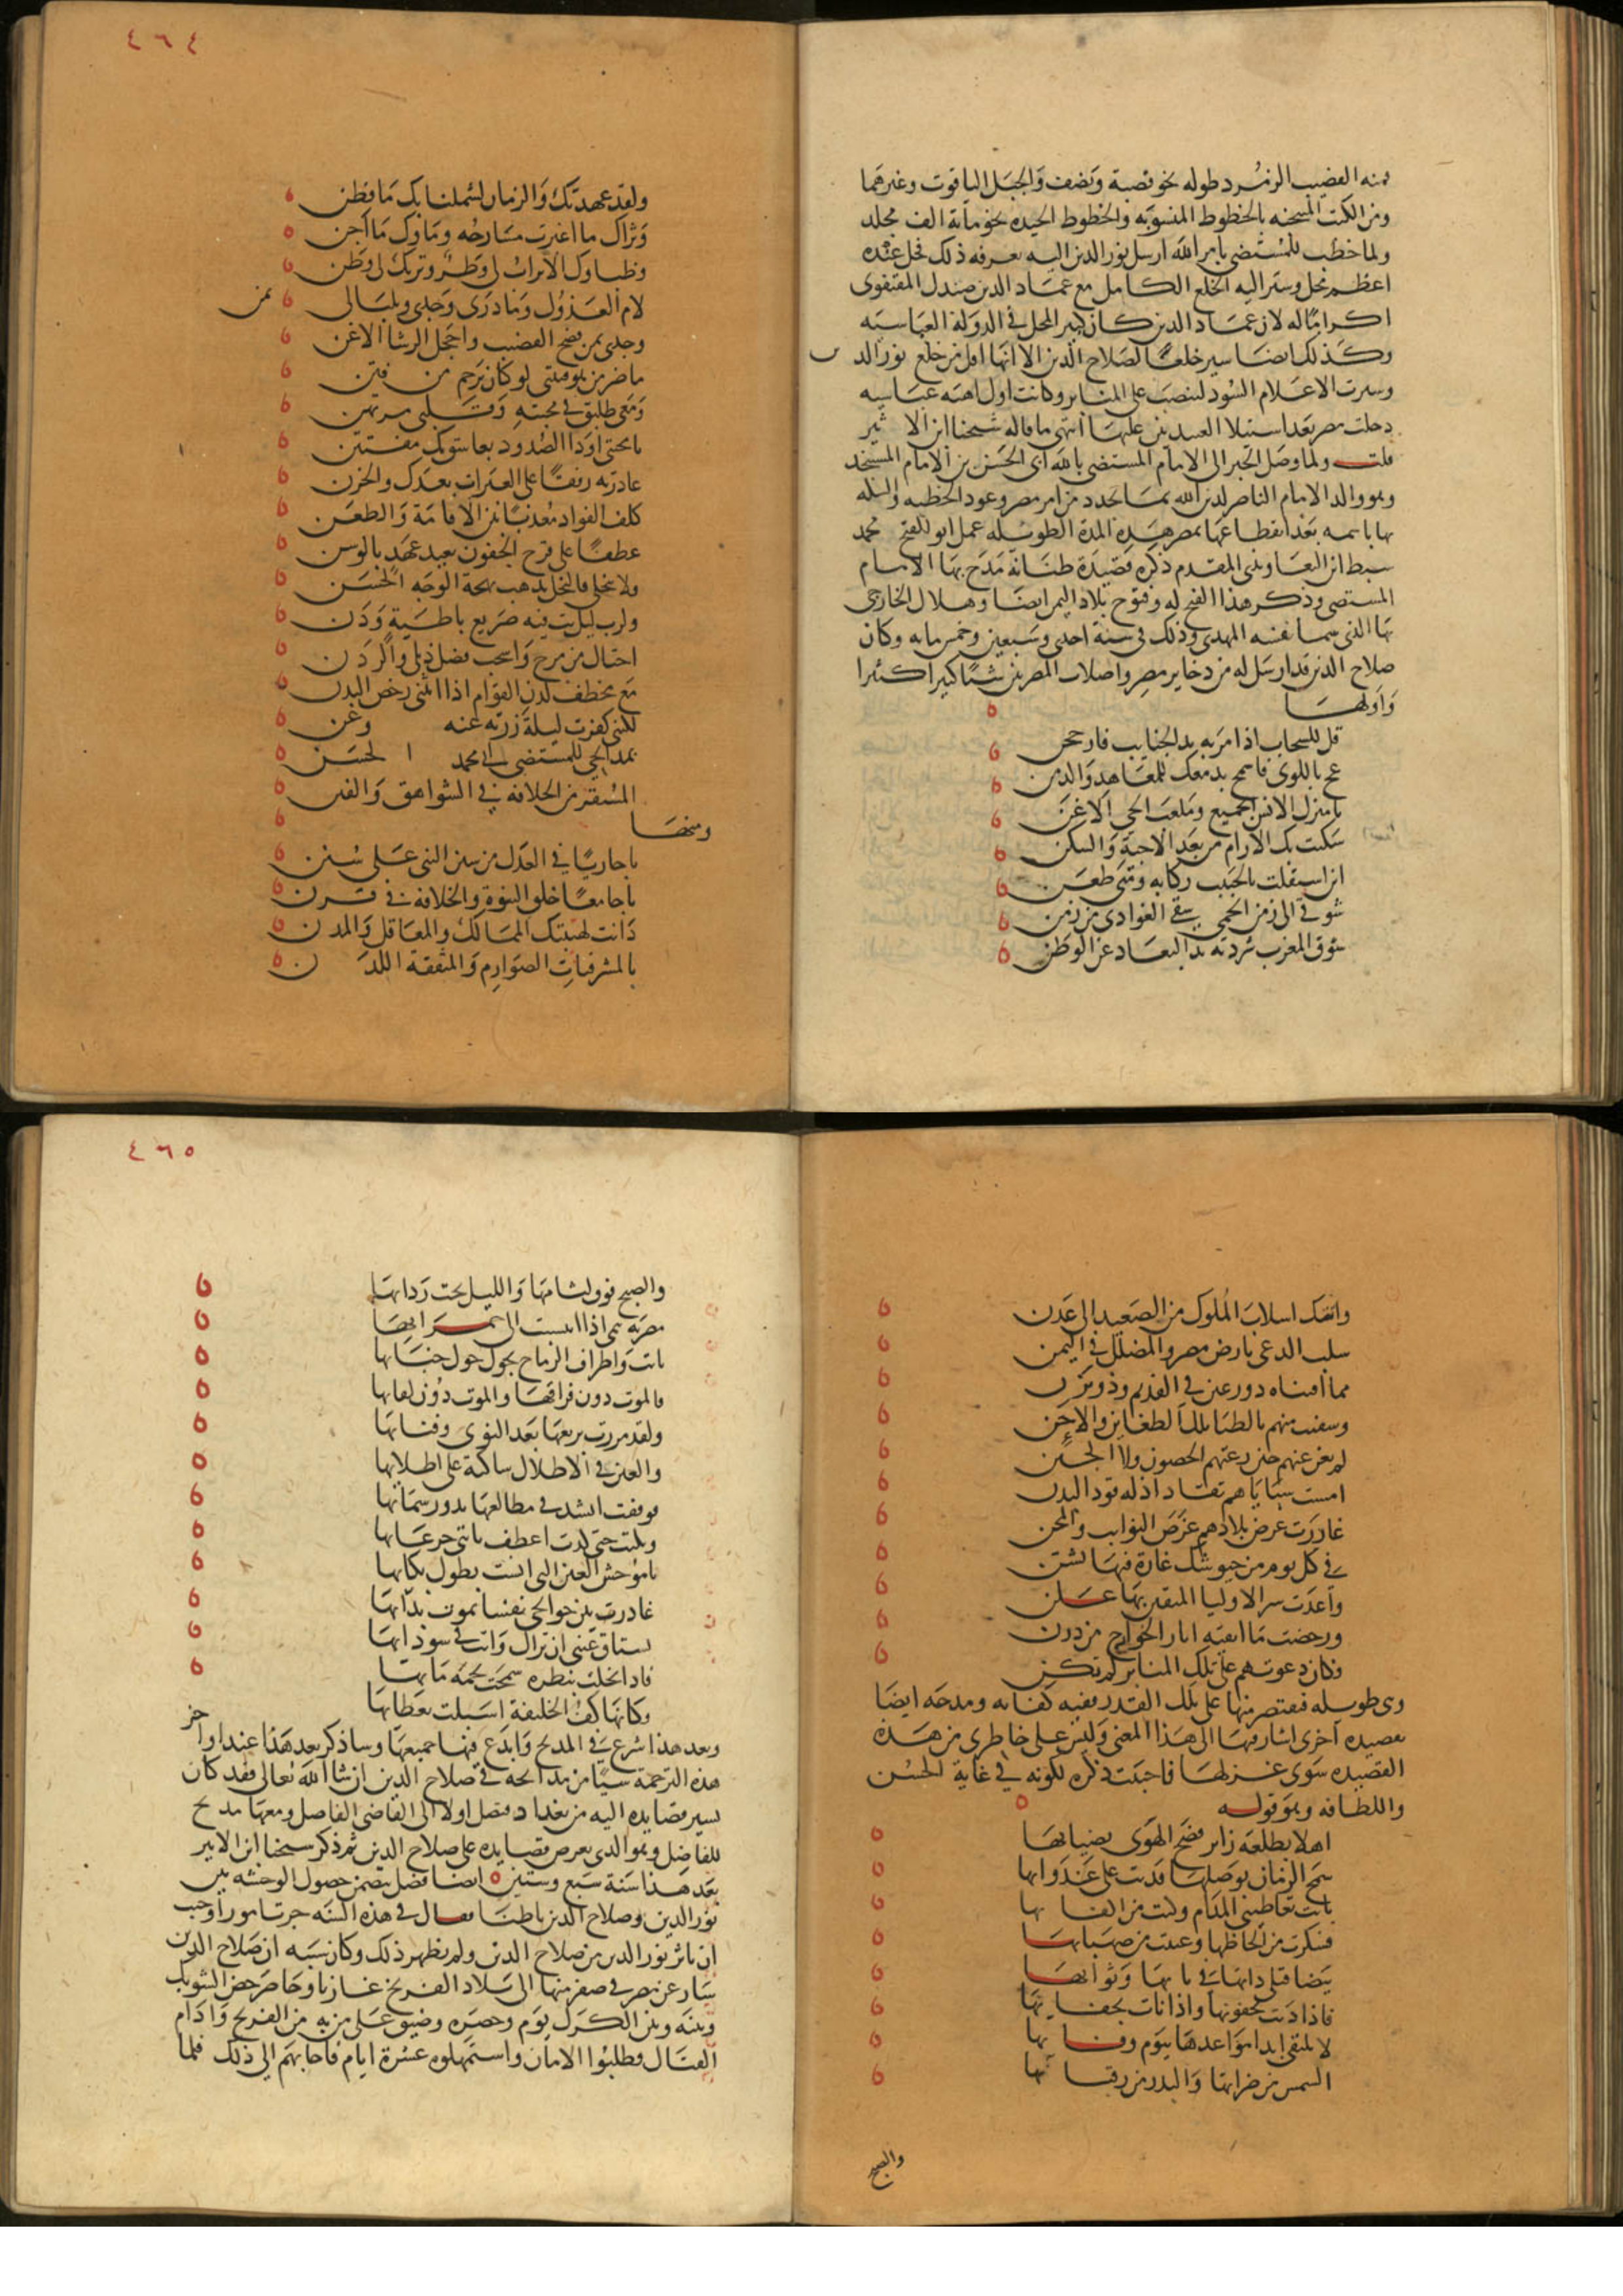 منه القضيب الزمرد طوله نحو قصبة ونصف والجبل الياقوت وغيرهما
ومن الكتب المنتخبة بالخطوط المنسوبة والخطوط الجيده نحو مأية الف مجلد
ولما خطب للمستضي بامر الله ارسل نور الدين اليه يعرفه ذلك فحل عنده
اعظم محل وسير اليه الخلع الكامل مع عماد الدين صندل المقتفوى
اكراما له لان عماد الدين كان كبير المحل في الدولة العباسية
وكذلك ايضا سير خلعًا لصلاح الدين الا انها اقل من خلع نور الد ىن
وسيرت الاعلام السود لتنصب على المنابر وكانت اول اهبه عباسيه
دخلت مصر بعد استيلا العبيديين عليها انتهى ما قاله شيخنا ابن الاثير
قلت ولما وصل الخبر الى الامام المستضي بالله ابي الحسن بن الامام المستنجد
وهو والد الامام الناصر لدين الله بما تجدد من امر مصر وعود الخطبه والسكه
بها باسمه بعد انقطاعها بمصر هذه المدة الطويله عمل ابو الفتح محمد
سبط ابن التعاويذي المقدم ذكره قصيدة طنانة مدح بها الامام
المستضي وذكر هذا الفتح له وفتوح بلاد اليمن ايضا وهلاك الخارجى
بها الذي سما نفسه المهدى وذلك في سنة احدى وسبعين وخمس مايه وكان
صلاح الدين قد ارسل له من دخاير مصر واسلاب المصريين شيئا كبيرا كثيرا
واولها
قل للسحاب اذا مرته يد الجنايب فارجحن
عج باللوى فاسمح بدمعك للمعاهد والدمن
يا منزل الانس الجميع وملعب الحي الاغن
سكنت بك الارام من بعد الاحبة والسكن
اين استقلت بالحبيب ركابه ومتى ظعن
شوقي الى زمن الحمى سقى الغوادى من زمن
شوق المغرب شردته يد البعاد عن الوطن
٤٦٤
ولقد عهدتك والزمان لشملنا بك ما فطن
وثراك ما اغبرت مسارحه وماوك ما اجن
وظباوك الاتراب لي وطر وتربك لي وطن
لام العذول وما درى وجدى وبلبالى بمن
وجدى بمن فضح القضيب واخجل الرشا الاغن
ما ضر من هو فتنتي لو كان يرحم من فتن
ومعي طليق في محبته وقلبى مرتهن
عادرته رهنا على العبرات بعدك والحزن
كلف الفواد معذبا بين الاقامة والظعن
عطفا على قرح الجفون بعيد عهد بالوسن
ولا تبخلي فالبخل يذهب بهجة الوجه الحسن
ولرب ليل بت فيه صريع باطية ودن
اختال من مرح واسحب فضل ذيلي والردن
مع مخطف لدن القوام اذا انثنى رخص البدن
لكنني كفرت ليلة زرته عنه وعن
بمدايحي للمستضي ابي محمد الحسن
المستقر من الخلافة في الشواهق والقنن
ومنها
يا جاريا في العدل من سنن النبي على سنن
يا جامعا خلق النبوة والخلافة في قرن
دانت لهيبتك الممالك والمعاقل والمدن
بالمشرفيات الصوارم والمثقفة اللدن
واتتك اسلاب الملوك من الصعيد الى عدن
سلب الدعى بارض مصر والمضلل في اليمن
مما اقتناه ذو رعين في القديم وذو يزن
لم يغن عنهم حين رعتهم الحصون ولا الجنن
امست سباياهم تقاد اذلة قود البدن
غادرت عرض بلادهم غرض النوايب والمحن
في كل يوم من جيوشك غارة فيها تشن
واعدت سر الاوليا المتقين بها علن
ورحضت ما ابقته اثار الخوارج من درن
فكان دعوتهم على تلك المنابر لم تكن
وهي طويله فنقتصر منها على تلك القدر ففيه كفايه ومدحه ايضا
بقصيده اخرى اشار فيها الى هذا المعنى وليس على خاطرى من هذه
القصيده سوى غزلها فاحببت ذكره لكونه في غاية الحسن
واللطافه وهو قوله
اهلا بطلعة زاير فضح الهوى بضيائها
سمح الزمان بوصلها فدنت على عدوائها
باتت تعاطيني المدام ولست من اكفائها
فسكرت من الحاظها وغنيت من صهبائها
بيضا قتلي دابها في نابها وثوائها
فاذا دنت بجفونها واذا نأت بجفائها
لا تلتقي ابدا مواعدها بيوم وفائها
الشمس من ضراتها والبدر من رقبائها
والصبح
٤٦٥
والصبح فوق لثامها والليل تحت ردائها
مضرية تنمى اذا انتسبت الى حمرائها
باتت واطراف الرماح تجول حول خبائها
فالموت دون فراقها والموت دون لقائها
ولقد مررت بربعها بعد النوى وفنائها
والعين في الاطلال ساكنة على اطلائها
فوقفت انشد في مطالعها بدور سمائها
وبكيت حتى كدت اعطف بانتي جرعائها
يا موحش العين التي انست بطول بكائها
غادرت بين جوانحي نفسا تموت بدائها
يشتاق عيني ان تراك وانت في سودائها
فاذا بخلت بنظرة سمحت بجمة مائها
وكانها كف الخليفة اسبلت بعطائها
وبعد هذا شرع في المديح وابدع فيها جميعها وساذكر بعد هذا عند اواخر
هذه الترجمة شيئا من مدائحه في صلاح الدين ان شا الله تعالى فقد كان
يسير قصايده اليه من بغداد فتصل اولا الى القاضي الفاضل ومعها مديح
للفاضل وهو الذى يعرض قصايده على صلاح الدين ثم ذكر شيخنا ابن الاثير
بعد هذا سنة سبع وستين ايضا فصل يتضمن حصول الوحشه بين
نور الدين وصلاح الدين باطنا فقال في هذه السنه جرت امور اوجبت
ان تاثر نور الدين من صلاح الدين ولم يظهر ذلك وكان سببه ان صلاح الدين
سار عن مصر في صفر منها الى بلاد الفرنج غازيا وحاصر حصن الشوبك
وبينه وبين الكرك يوم وحصره وضيق على من به من الفرنج وادام
القتال فطلبوا الامان واستمهلوه عشرة ايام فاجابهم الى ذلك فلما